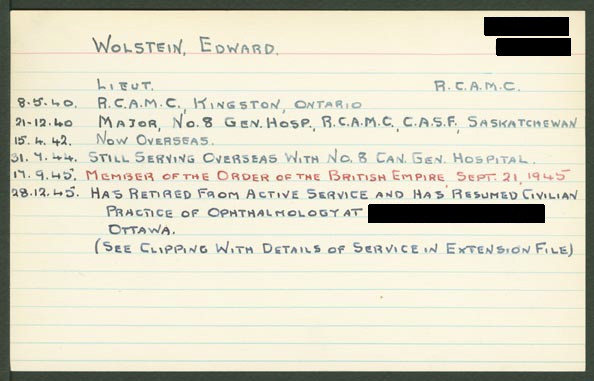 WOLSTEIN, EDWARD.
LIEUT. R.C.A.M.C.
8.5.40. R.C.A.M.C., KINGSTON, ONTARIO
21-12.40 MAJOR, NO. 8 GEN. HOSP., R.C.A.M.C., C.A.S.F., SASKATCHEWAN
15.4.42. NOW OVERSEAS.
31.7.44. STILL SERVING OVERSEAS WITH NO. 8 CAN. GEN. HOSPITAL.
17.9.45. MEMBER OF THE ORDER OF THE BRITISH EMPIRE SEPT. 21, 1945
28.12.45. HAS RETIRED FROM ACTIVE SERVICE AND HAS RESUMED CIVILIAN
PRACTICE OF OPHTHALMOLOGY AT
OTTAWA.
(SEE CLIPPING WITH DETAILS OF SERVICE IN EXTENSION FILE)